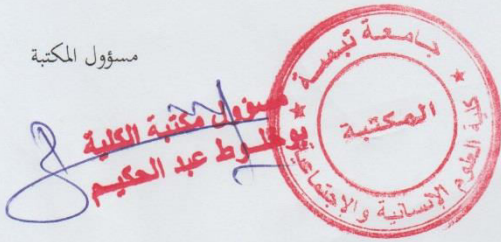 مسؤول المكتبة
مسؤول مكتبة الكلية
بوخلوط عبد الحكيم
جامعة تبسة
كلية العلوم الإنسانية والإجتماعية
المكتبة